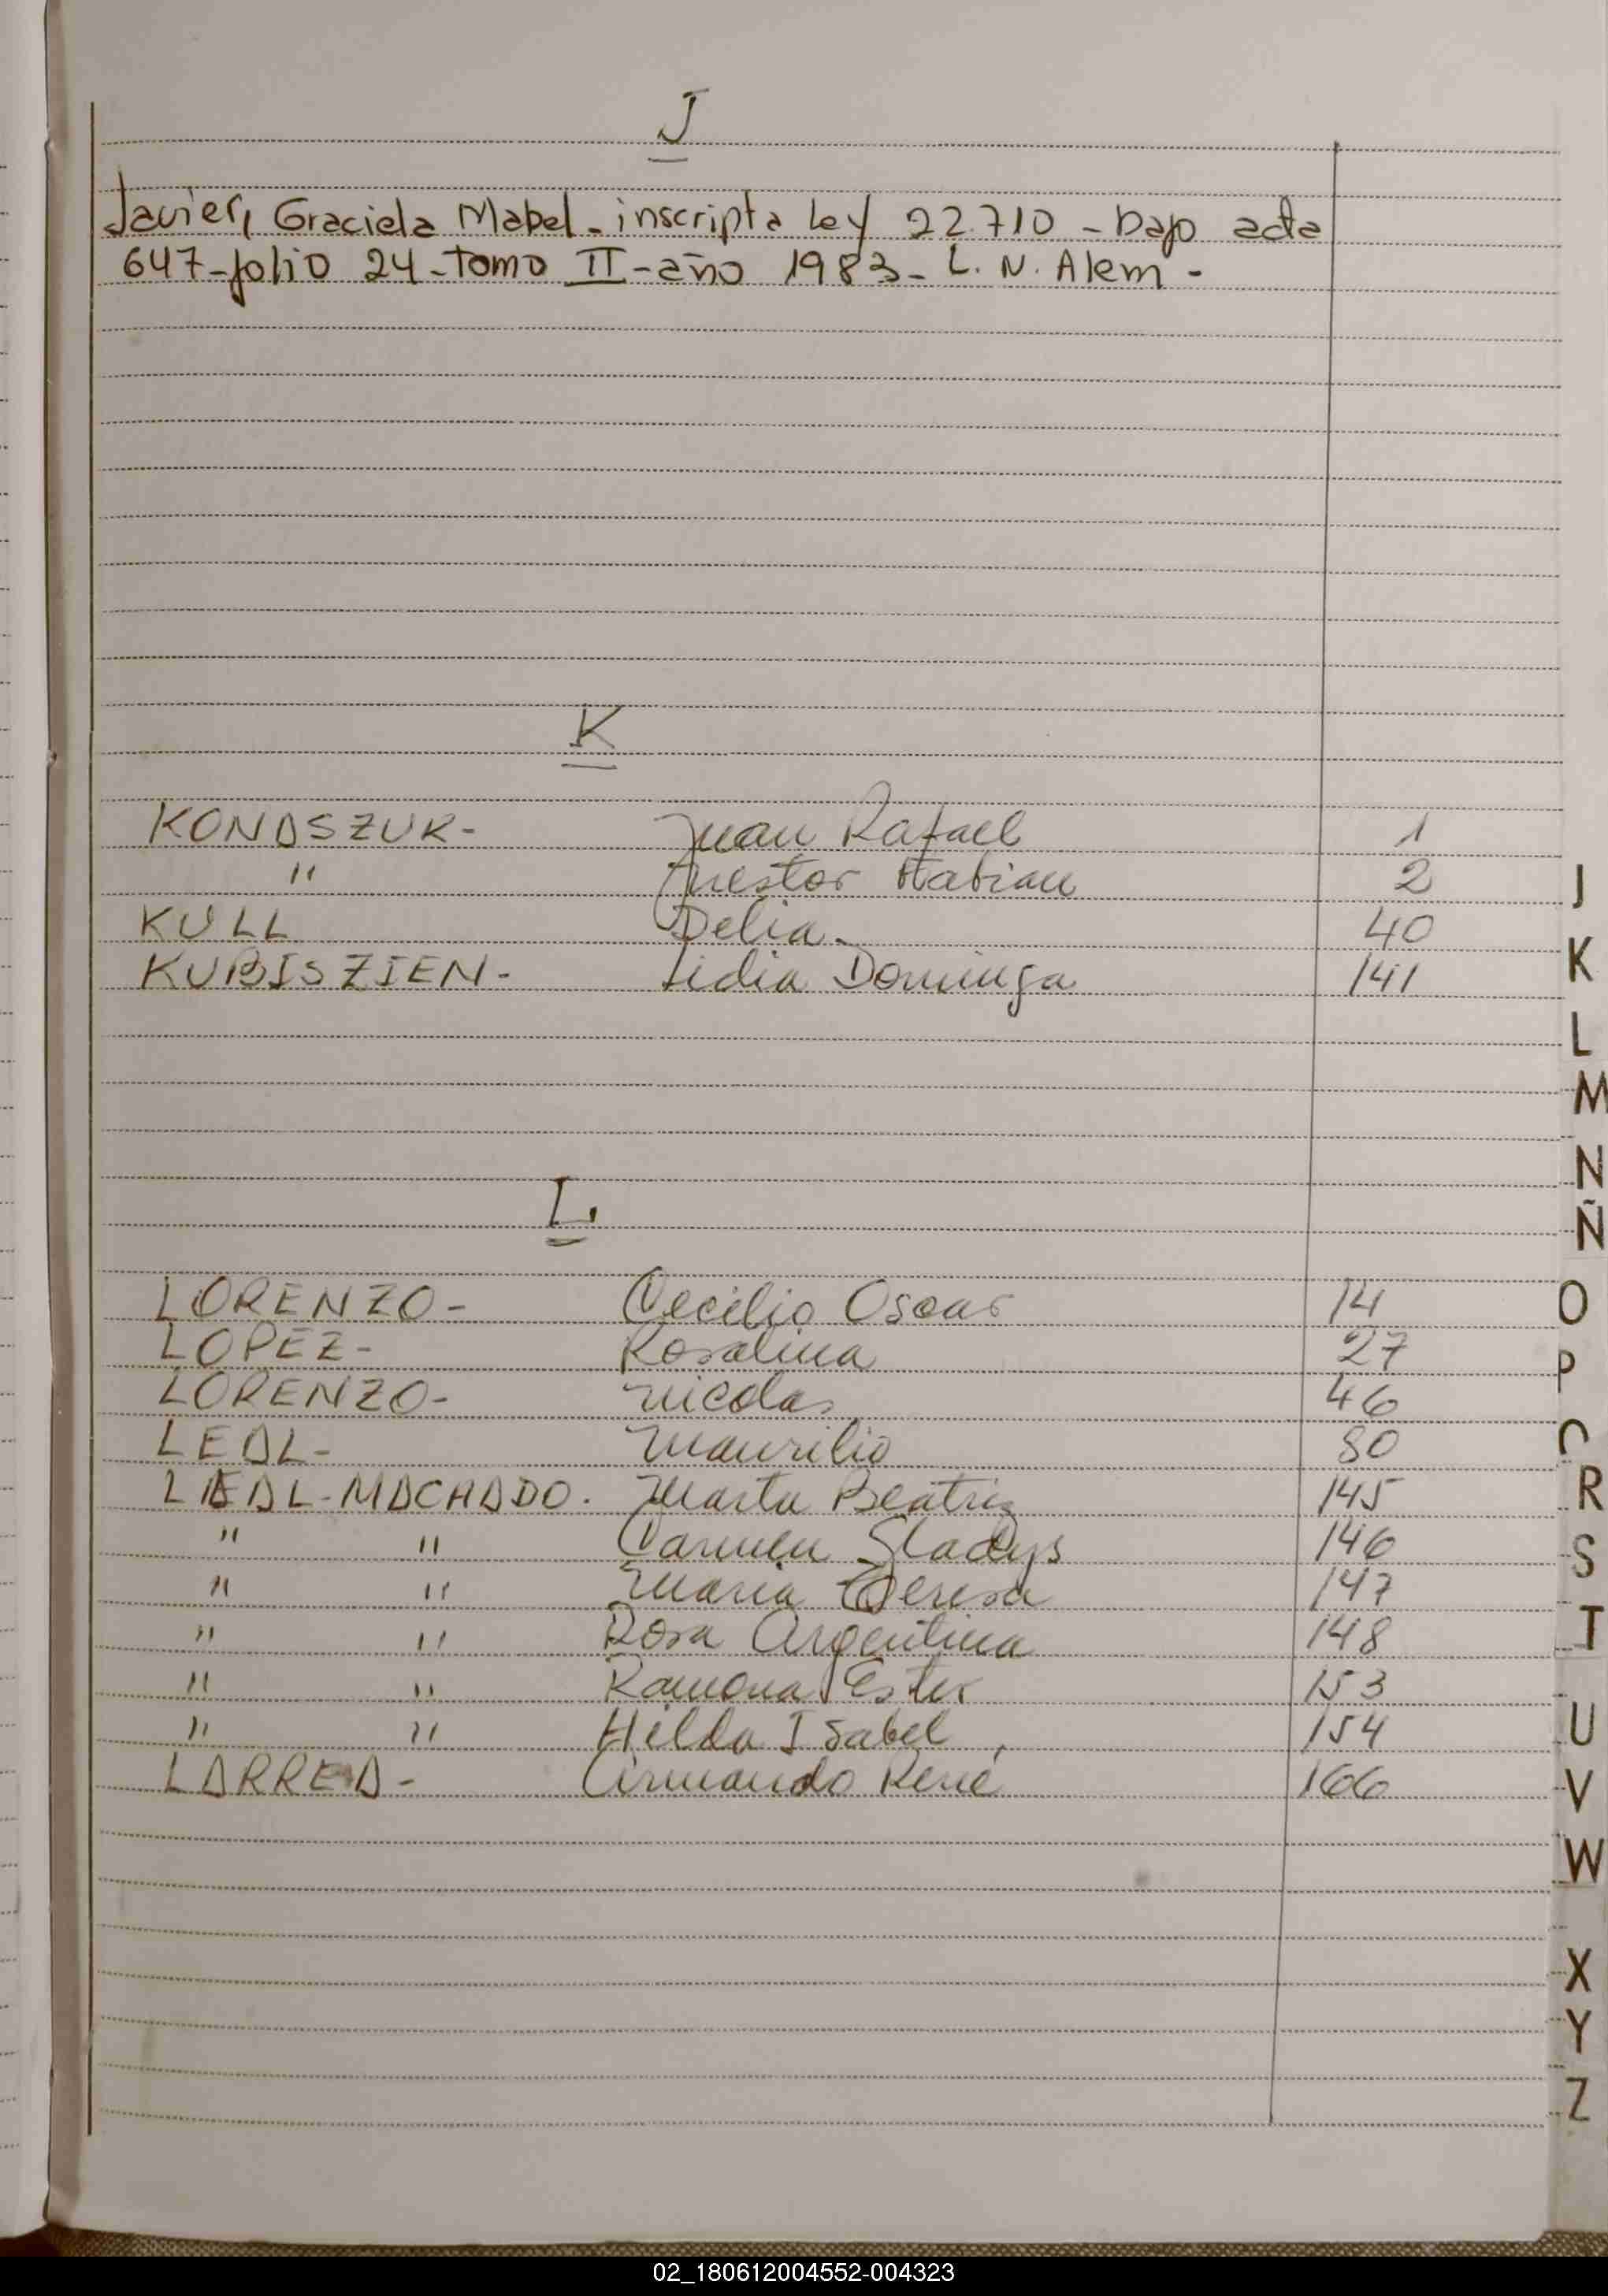 J
Javier, Graciela Mabel - inscripta Ley 22.710 - bajo acta
647 - folio 24 - tomo II - año 1983 - L. N. Alem -
K
KONASZUK - Juan Rafael 1
" Nestor Fabian 2
KULL Delia 40
KUBISZIEN - Lidia Dominga 141
L
LORENZO - Cecilio Oscar 14
LOPEZ - Rosalina 27
LORENZO - Nicolas 46
LEAL - Maurilio 80
LEAL - MACHADO. Marta Beatriz 145
" " Carmen Gladys 146
" " Maria Teresa 147
" " Rosa Argentina 148
" " Ramona Ester 153
" " Hilda Isabel 154
LARREA - Armando René 166
J
K
L
M
N
Ñ
O
P
R
S
T
U
V
W
X
Y
Z
02_180612004552-004323